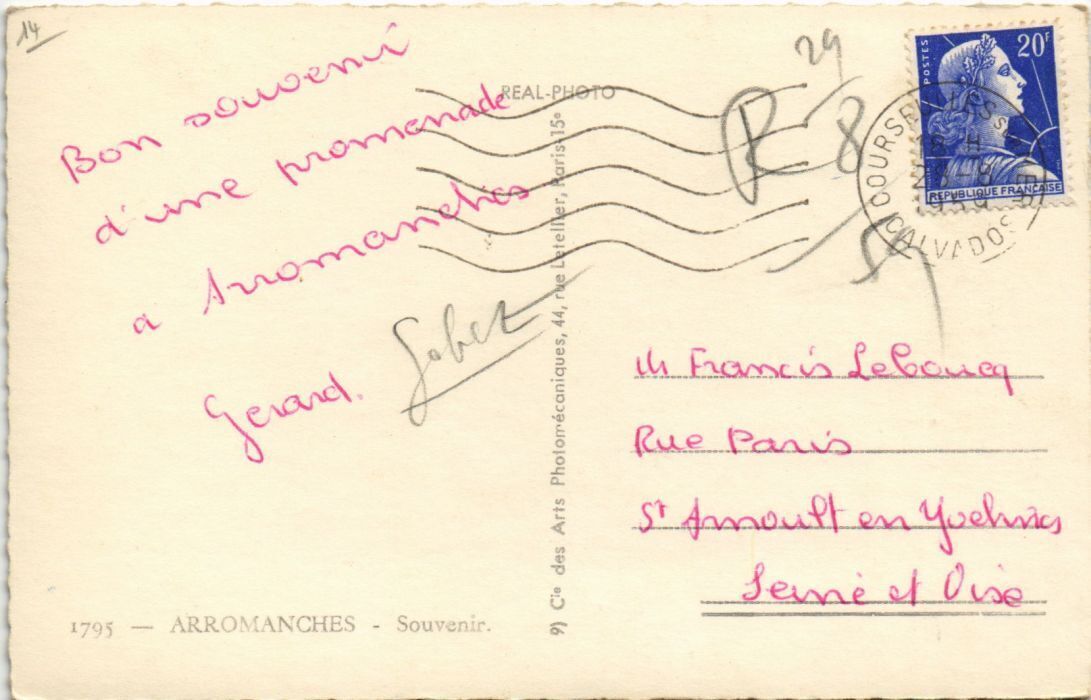 14
Bon souvenir
d'une promenade
a Arromanches
Gerard.
1795 — ARROMANCHES - Souvenir.
REAL-PHOTO
9) Cie des Arts Photomécaniques, 44, rue Letellier, Paris-15e
R
29
8
59
POSTES
20F
REPUBLIQUE FRANÇAISE
CALVADOS
M Francis Leboucq
Rue Paris
St Arnoult en Yvelines
Seine et Oise